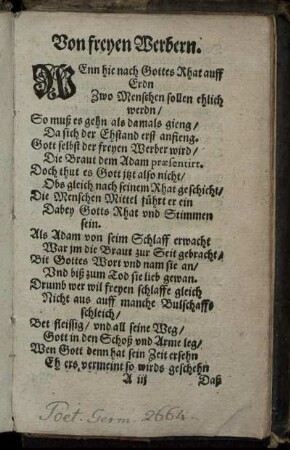 Von freyen Werbern.
WEnn hie nach Gottes Rhat auff
Erdn
Zwo Menschen sollen ehlich
werdn/
So muß es gehn als damals gieng/
Da sich der Ehstand erst anfieng.
Gott selbst der freyen Werber wird/
Die Braut dem Adam præsentirt.
Doch thut es Gott itzt also nicht/
Obs gleich nach seinem Rhat geschicht/
Die Menschen Mittel führt er ein
Dabey Gotts Rhat vnd Stimmen
sein.
Als Adam von seim Schlaff erwacht
War jm die Braut zur Seit gebracht/
Bit Gottes Wort vnd nam sie an/
Vnd biß zum Tod sie lieb gewan.
Drumb wer wil freyen schlaffe gleich
Nicht aus auff manche Bulschafft
schleich/
Bet fleissig/ vnd all seine Weg/
Gott in den Schoß vnd Arme leg/
Wen Gott denn hat sein Zeit ersehn
Eh ers vermeint so wirds geschehn
A iij Daß
Poet. Germ. 2664.